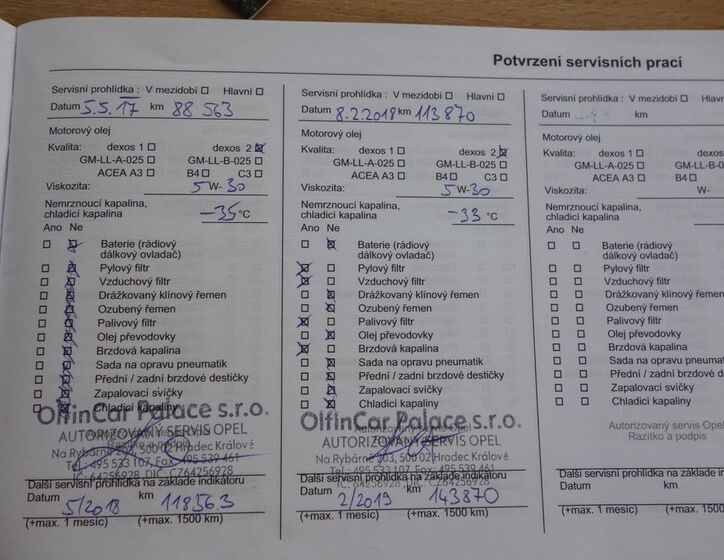 Potvrzení servisních prací
Servisní prohlídka : V mezidobí ☐ Hlavní ☐
Datum 5.5.17 km 88 563
Motorový olej
Kvalita: dexos 1 ☐ dexos 2 ☒
GM-LL-A-025 ☐ GM-LL-B-025 ☐
ACEA A3 ☐ B4 ☐ C3 ☐
Viskozita: 5 W-30
Nemrznoucí kapalina,
chladicí kapalina -35 °C
Ano Ne
☐ ☒ Baterie (rádiový
dálkový ovladač)
☐ ☒ Pylový filtr
☐ ☒ Vzduchový filtr
☐ ☒ Drážkovaný klínový řemen
☐ ☒ Ozubený řemen
☐ ☒ Palivový filtr
☐ ☒ Olej převodovky
☐ ☒ Brzdová kapalina
☐ ☒ Sada na opravu pneumatik
☐ ☒ Přední / zadní brzdové destičky
☐ ☒ Zapalovací svíčky
☐ ☒ Chladicí kapaliny
OlfinCar Palace s.r.o.
AUTORIZOVANÝ SERVIS OPEL
Na Rybárně 500 02 Hradec Králové
Tel.: 495 533 107, Fax: 495 539 461
IČ: 64256928, DIČ: CZ64256928
Další servisní prohlídka na základě indikátoru
Datum 5/2018 km 118563
(+max. 1 mesíc) (+max. 1500 km)
Servisní prohlídka : V mezidobí ☐ Hlavní ☐
Datum 8.2.2018 km 113870
Motorový olej
Kvalita: dexos 1 ☐ dexos 2 ☒
GM-LL-A-025 ☐ GM-LL-B-025 ☐
ACEA A3 ☐ B4 ☐ C3 ☐
Viskozita: 5 W-30
Nemrznoucí kapalina,
chladicí kapalina -33 °C
Ano Ne
☐ ☒ Baterie (rádiový
dálkový ovladač)
☒ ☐ Pylový filtr
☒ ☐ Vzduchový filtr
☐ ☒ Drážkovaný klínový řemen
☐ ☒ Ozubený řemen
☒ ☐ Palivový filtr
☐ ☒ Olej převodovky
☒ ☐ Brzdová kapalina
☐ ☒ Sada na opravu pneumatik
☐ ☒ Přední / zadní brzdové destičky
☐ ☒ Zapalovací svíčky
☐ ☒ Chladicí kapaliny
OlfinCar Palace s.r.o.
AUTORIZOVANÝ SERVIS OPEL
Na Rybárně 500 02 Hradec Králové
Tel.: 495 533 107, Fax: 495 539 461
IČ: 64256928, DIČ: CZ64256928
Další servisní prohlídka na základě indikátoru
Datum 2/2019 km 143870
(+max. 1 mesíc) (+max. 1500 km)
Servisní prohlídka : V mezidobí ☐ Hlavní
Datum km
Motorový olej
Kvalita: dexos 1 ☐ dexos
GM-LL-A-025 ☐ GM-LL-B-025
ACEA A3 ☐ B4 ☐ C3
Viskozita: W-
Nemrznoucí kapalina,
chladicí kapalina
Ano Ne
☐ ☐ Baterie (rádiový
dálkový ovladač)
☐ ☐ Pylový filtr
☐ ☐ Vzduchový filtr
☐ ☐ Drážkovaný klínový řemen
☐ ☐ Ozubený řemen
☐ ☐ Palivový filtr
☐ ☐ Olej převodovky
☐ ☐ Brzdová kapalina
☐ ☐ Sada na opravu pneumatik
☐ ☐ Přední / zadní brzdové destičky
☐ ☐ Zapalovací svíčky
☐ ☐ Chladicí kapaliny
Autorizovaný servis Opel
Razítko a podpis
Další servisní prohlídka na základě
Datum km
(+max. 1 mesíc) (+max. 1500 km)